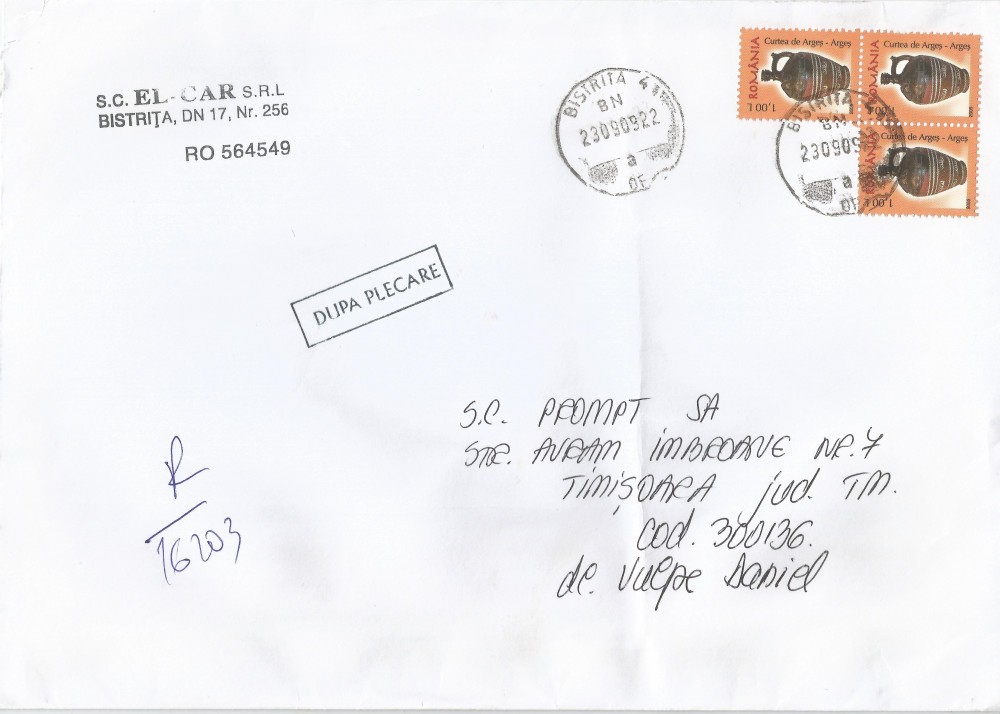 S.C. EL-CAR S.R.L
BISTRIŢA, DN 17, Nr. 256
RO 564549
BISTRITA 4
BN
23090922
a
OF
Curtea de Argeş - Argeş
ROMÂNIA
1,00 L
Curtea de Argeş - Argeş
ROMÂNIA
BISTRITA
BN
230909
a
OF
Curtea de Argeş - Argeş
ROMÂNIA
1,00 L
DUPA PLECARE
S.C. PROMPT SA
STR. AVRAM IMBROANE NR. 7
TIMIŞOARA jud. TM.
cod. 300136.
dl. Vulpe Daniel
R
16203